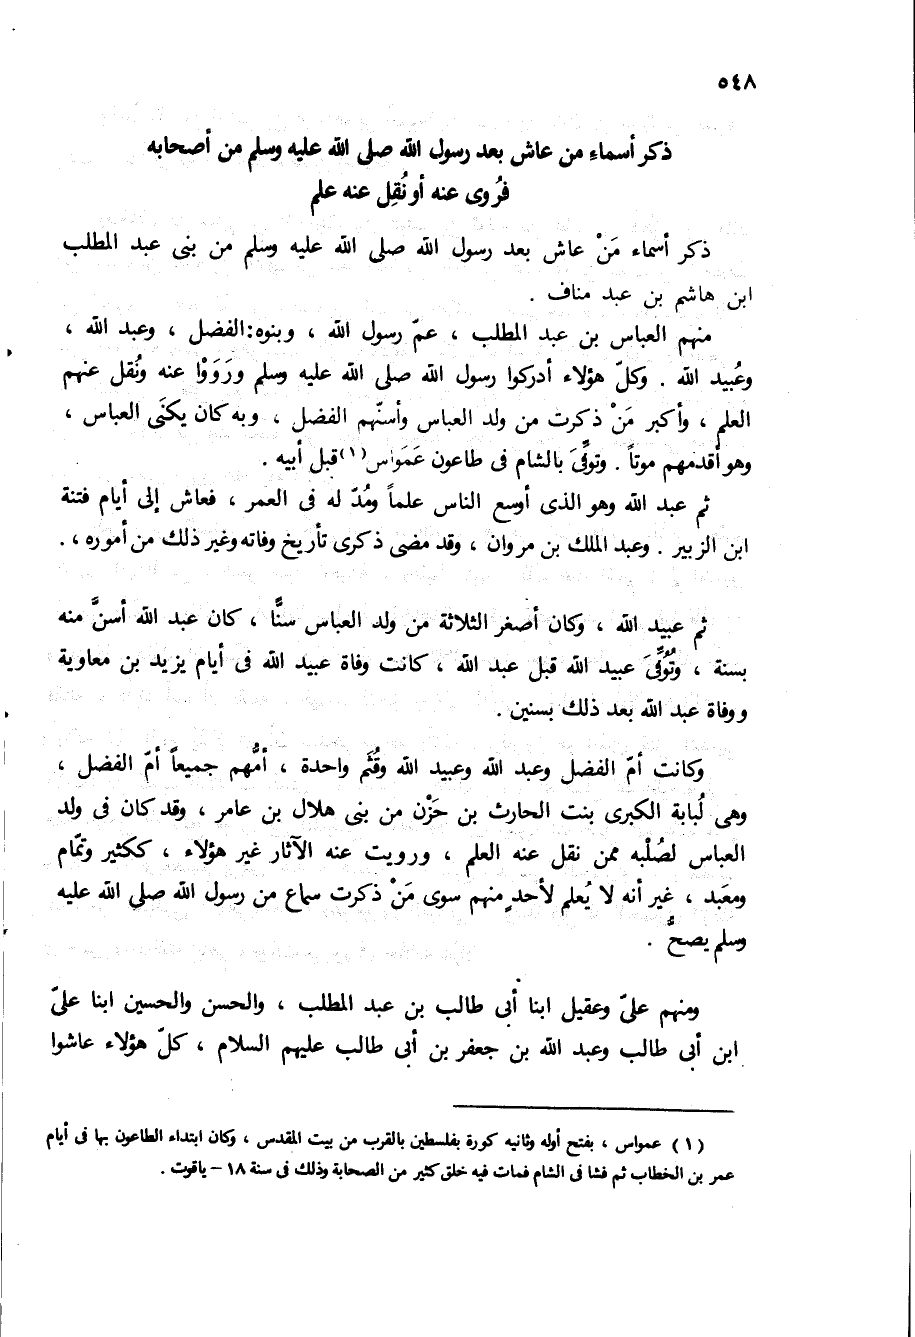 ٥٤٨
ذكر أسماء من عاش بعد رسول الله صلى الله عليه وسلم من أصحابه
فرُوى عنه أو نُقِل عنه علم
ذكر أسماء مَنْ عاش بعد رسول الله صلى الله عليه وسلم من بنى عبد المطلب
ابن هاشم بن عبد مناف .
منهم العباس بن عبد المطلب ، عمّ رسول الله ، وبنوه: الفضل ، وعبد الله ،
وعُبيد الله . وكلّ هؤلاء أدركوا رسول الله صلى الله عليه وسلم ورَوَوْا عنه ونُقل عنهم
العلم ، وأكبر مَنْ ذكرت من ولد العباس وأسنّهم الفضل ، وبه كان يكنَى العباس ،
وهو أقدمهم موتاً . وتوفِّىَ بالشام فى طاعون عَمَواس (١) قبل أبيه .
ثم عبد الله وهو الذى أوسع الناس علماً ومُدّ له فى العمر ، فعاش إلى أيام فتنة
ابن الزبير . وعبد الملك بن مروان ، وقد مضى ذكرى تأريخ وفاته وغير ذلك من أموره ، .
ثم عبيد الله ، وكان أصغر الثلاثة من ولد العباس سنًّا ، كان عبد الله أسنَّ منه
بسنة ، وتُوُفِّىَ عبيد الله قبل عبد الله ، كانت وفاة عبيد الله فى أيام يزيد بن معاوية
ووفاة عبد الله بعد ذلك بسنين .
وكانت أمّ الفضل وعبد الله وعبيد الله وقُثَم واحدة ، أمُّهم جميعاً أمّ الفضل ،
وهى لُبابة الكبرى بنت الحارث بن حَزْن من بنى هلال بن عامر ، وقد كان فى ولد
العباس لصُلْبه ممن نقل عنه العلم ، ورويت عنه الآثار غير هؤلاء ، ككثير وتمّام
ومعَبد ، غير أنه لا يُعلم لأحدٍ منهم سوى مَنْ ذكرت سماع من رسول الله صلى الله عليه
وسلم يصحُّ .
ومنهم علىّ وعقيل ابنا أبى طالب بن عبد المطلب ، والحسن والحسين ابنا علىّ
ابن أبى طالب وعبد الله بن جعفر بن أبى طالب عليهم السلام ، كلّ هؤلاء عاشوا
(١) عمواس ، بفتح أوله وثانيه كورة بفلسطين بالقرب من بيت المقدس ، وكان ابتداء الطاعون بها فى أيام
عمر بن الخطاب ثم فشا فى الشام فمات فيه خلق كثير من الصحابة وذلك فى سنة ١٨ – ياقوت .